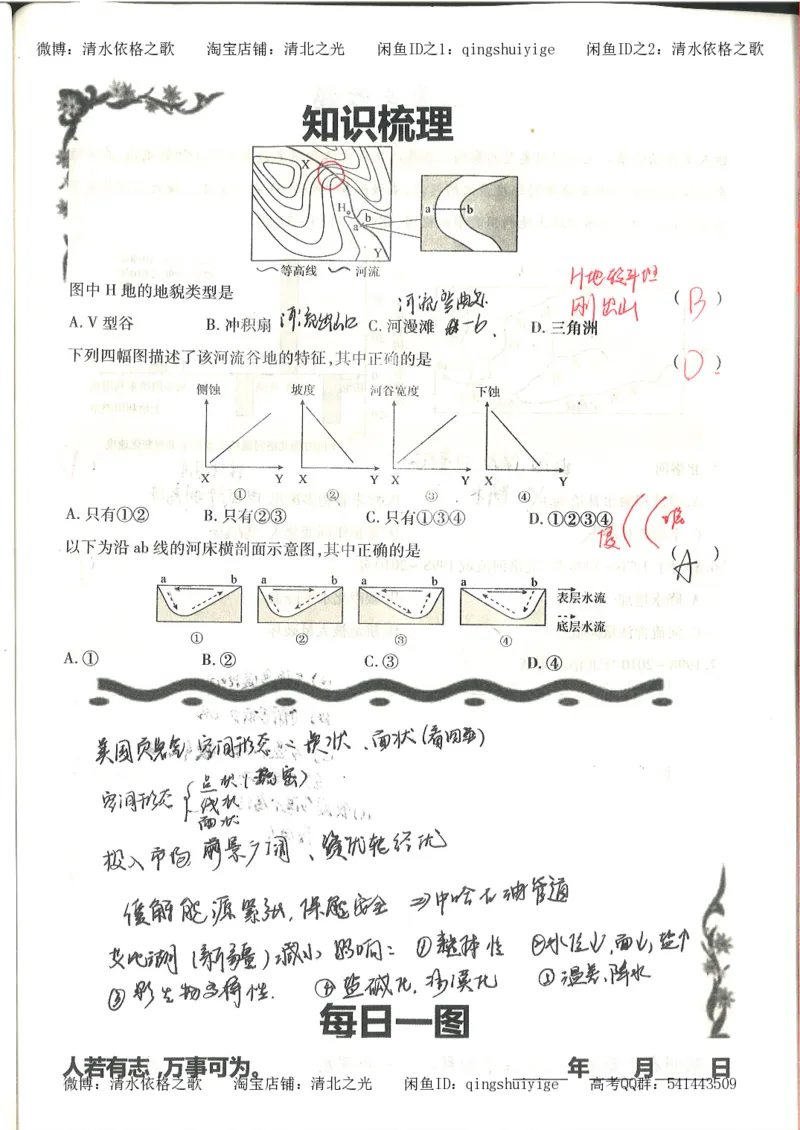 微博：清水依格之歌 淘宝店铺：清北之光 闲鱼ID之1：qingshuiyige 闲鱼ID之2：清水依格之歌
知识梳理
X
H
a b
Y
a b
等高线 河流
H地较平坦
刚出山
图中 H 地的地貌类型是 ( B )
河流弯曲处
A. V 型谷 B. 冲积扇 河流出山口 C. 河漫滩 a-b D. 三角洲
下列四幅图描述了该河流谷地的特征，其中正确的是 ( D )
侧蚀 坡度 河谷宽度 下蚀
X Y X Y X Y X Y
① ② ③ ④
A. 只有①② B. 只有②③ C. 只有①③④ D. ①②③④
以下为沿 ab 线的河床横剖面示意图，其中正确的是 ( A )
a b a b a b a b
表层水流
底层水流
① ② ③ ④
A. ① B. ② C. ③ D. ④
美国页岩气 空间形态：点状、面状(看图)
空间形态 点状(疏密)
线状
面状
投入市场 前景广阔、
缓解能源紧张，保能安全 ⇒中哈石油管道
艾比湖(新疆)减小 影响：①整体性 ②水位↓，面↓，盐↑
③影生物多样性. ④盐碱化，沙漠化 ⑤温差、降水
每日一图
人若有志，万事可为。 年 月 日
微博：清水依格之歌 淘宝店铺：清北之光 闲鱼ID：qingshuiyige 高考QQ群：541443509